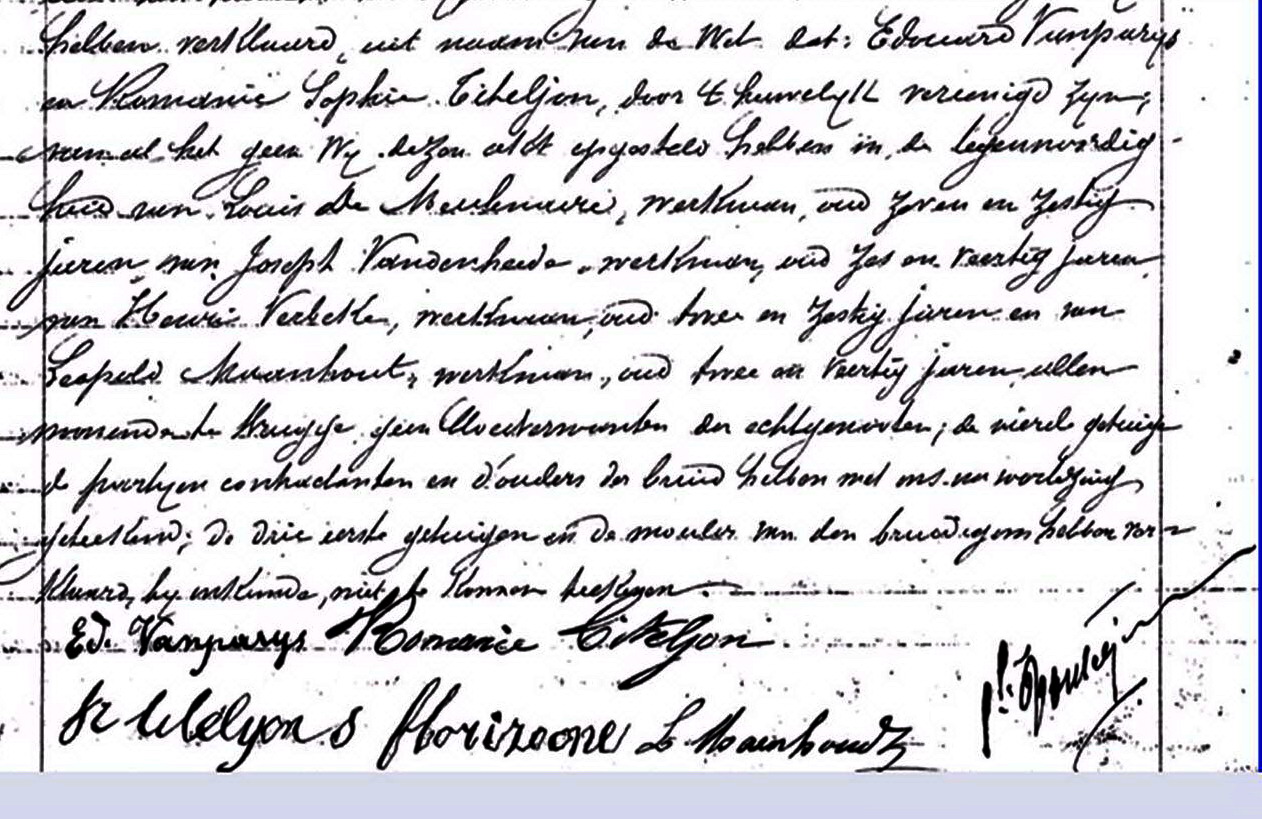 hebben verklaard, uit naam van de Wet dat: Edouard Vanparys
en Romanie Sophie Titeljon, door 't huwelyk vereenigd zyn;
van al het geen Wy dezen akte opgesteld hebben in de tegenwoordig-
heid van Louis De Meulenaere, werkman, oud zeven en zestig
jaren, van Joseph Vandenheede, werkman, oud zes en veertig jaren,
van Henri Verbeke, werkman, oud twee en zestig jaren en van
Leopold Maenhout, werkman, oud twee en veertig jaren, allen
wonende te Brugge geen bloedverwanten der echtgenooten; de vierde getuige
de partyen contractanten en d'ouders der bruid hebben met ons na voorlezing
geteekend; de drie eerste getuigen en de moeder van den bruidegom hebben ver-
klaard, by onkunde, niet te konnen teekenen.
Ed. Vanparys Romanie Titeljon
S florizoone L Maenhoudt